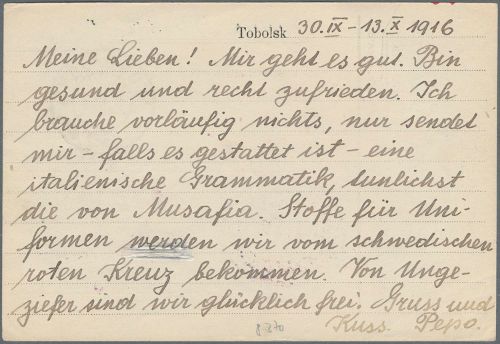 Tobolsk 30.IX – 13.X 1916
Meine Lieben! Mir geht es gut. Bin
gesund und recht zufrieden. Ich
brauche vorläufig nichts, nur sendet
mir – falls es gestattet ist – eine
italienische Grammatik, tunlichst
die von Musafia. Stoffe für Uni-
formen werden wir vom schwedischen
roten Kreuz bekommen. Von Unge-
ziefer sind wir glücklich frei. Gruss und
Kuss. Pepo.